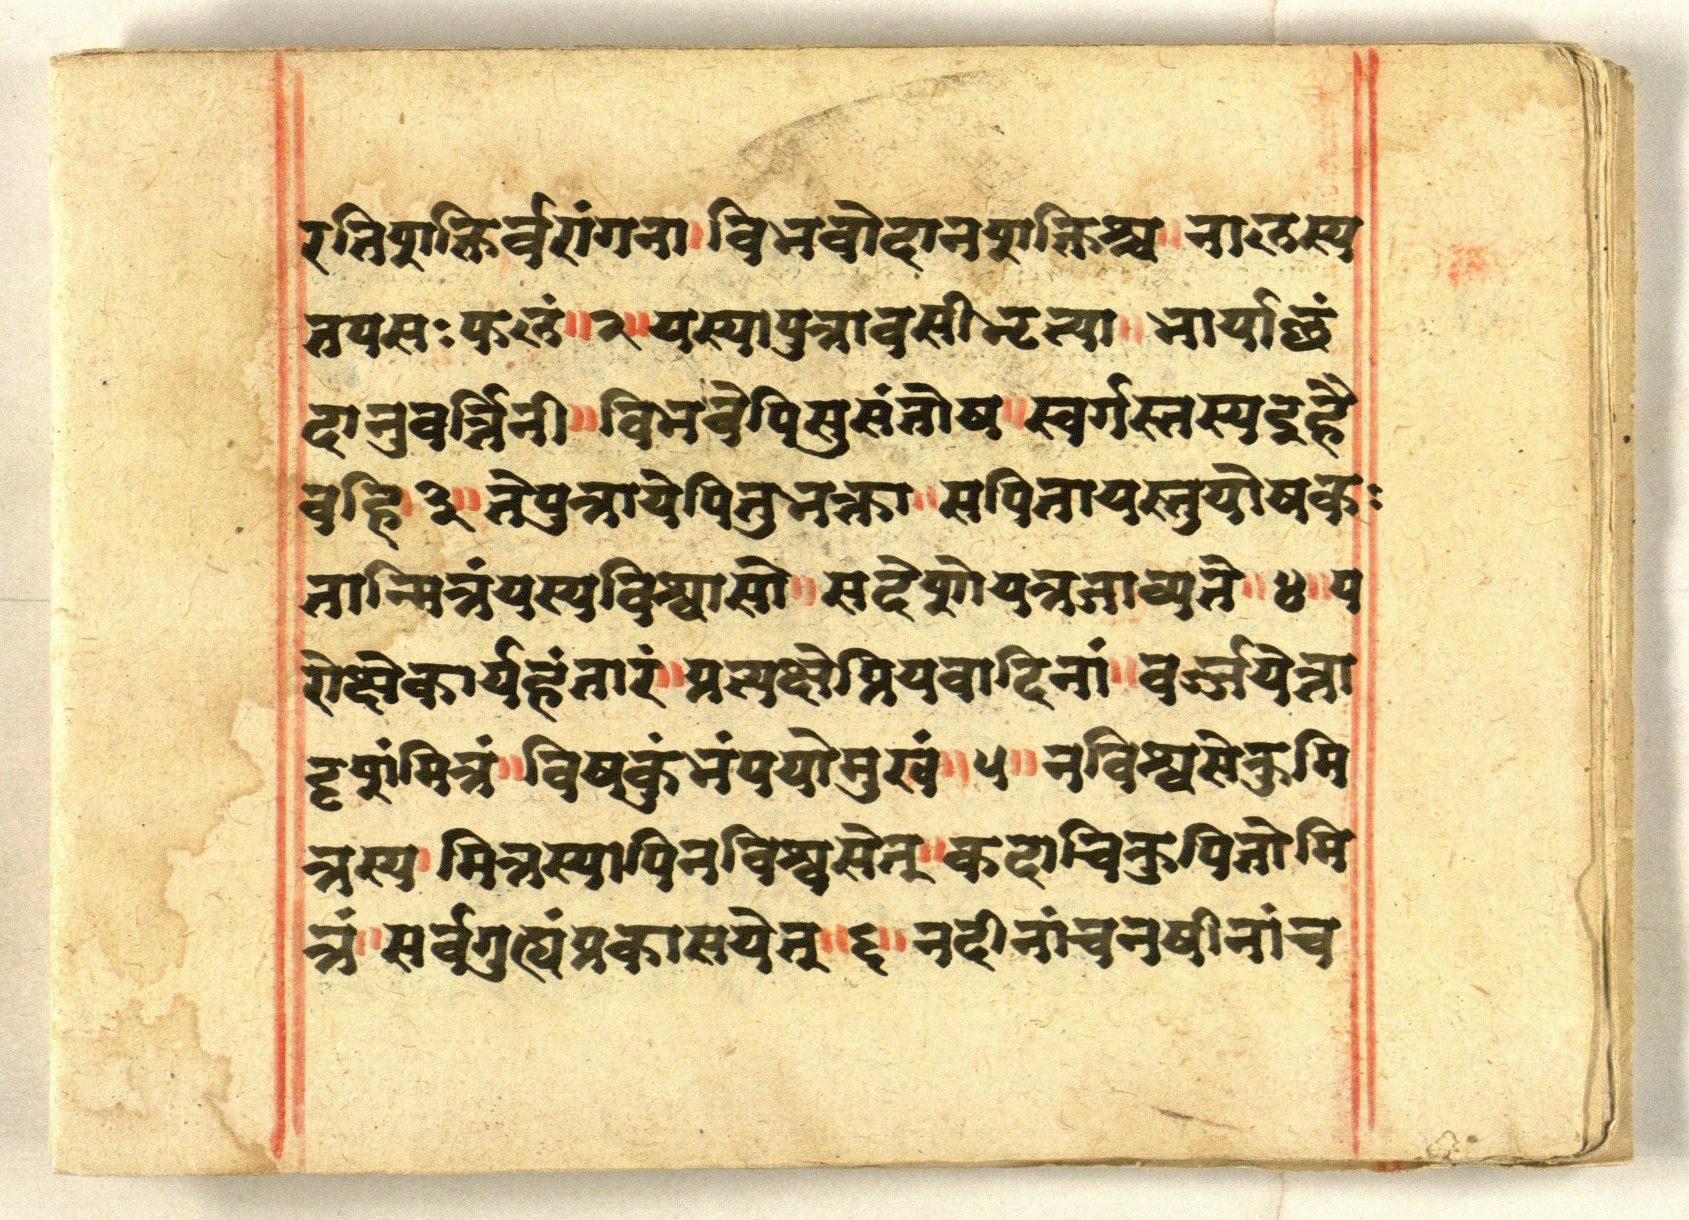 रतिशक्तिर्वरांगना। विभवोदानशक्तिश्च॥ नाल्तस्य
तपसः फलं॥ २॥ यस्यापुत्रावसीभृत्या॥ भार्याछं
दानुवर्त्तिनी॥ विभवेपिसुसंतोष॥ स्वर्गस्तस्यदुहै
वहि। ३॥ तेपुत्रायेपितुभक्ता॥ सपितायस्तुयोषकः
तान्मित्रंयस्यविश्वासो॥ सदेशोयत्रजाव्यते॥ ४॥ प
रोक्षेकार्यहंतारं॥ प्रत्यक्षेप्रियवादिनां॥ वर्ज्जयेत्ता
दृशंमित्रं॥ विषकुंभंपयोमुखं॥ ५॥ नविश्वसेकुमि
त्रस्य। मित्रस्यापिनविश्वसेत्॥ कदाचिकुपितोमि
त्रं॥ सर्वगुह्यंप्रकासयेत्॥ ६॥ नदीनांचनषीनांच